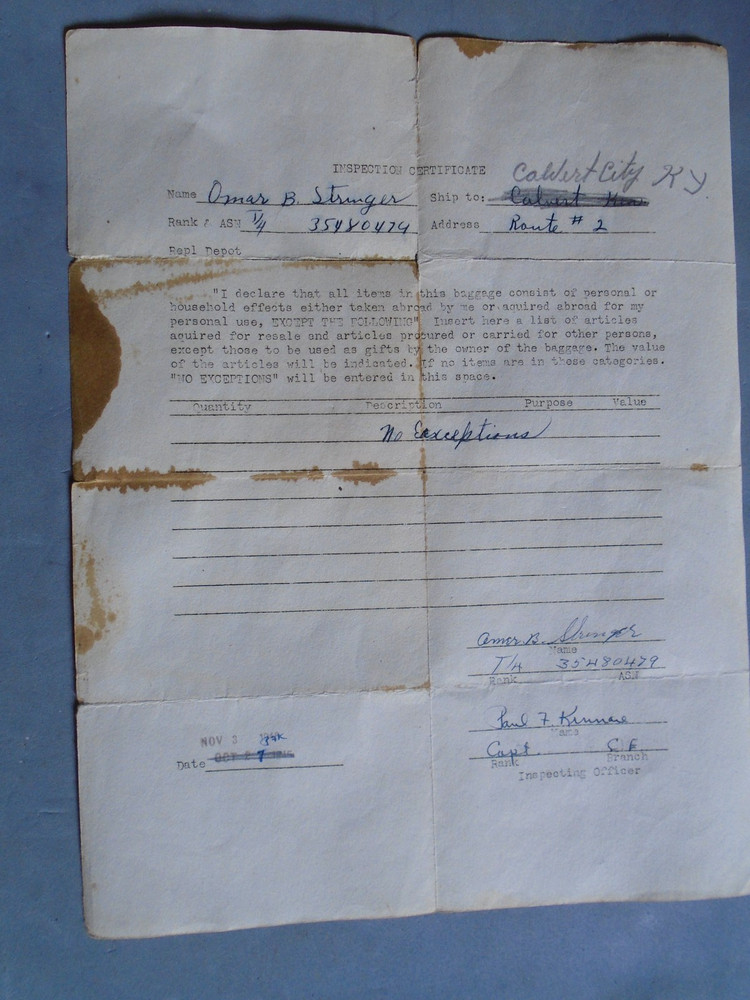 INSPECTION CERTIFICATE
Calvert City Ky
Name Omar B. Stringer Ship to: Calvert
Rank & ASN T/4 35480479 Address Route # 2
Repl Depot
"I declare that all items in this baggage consist of personal or
household effects either taken abroad by me or aquired abroad for my
personal use, EXCEPT THE FOLLOWING" Insert here a list of articles
aquired for resale and articles procured or carried for other persons,
except those to be used as gifts by the owner of the baggage. The value
of the articles will be indicated. If no items are in these categories.
"NO EXCEPTIONS" will be entered in this space.
Quantity Description Purpose Value
No Exceptions
Omer B. Stringer
Name
T/4 35480479
Rank ASN
Paul F.
Name
Capt. CE
Rank Branch
Inspecting Officer
NOV 3
Date OCT